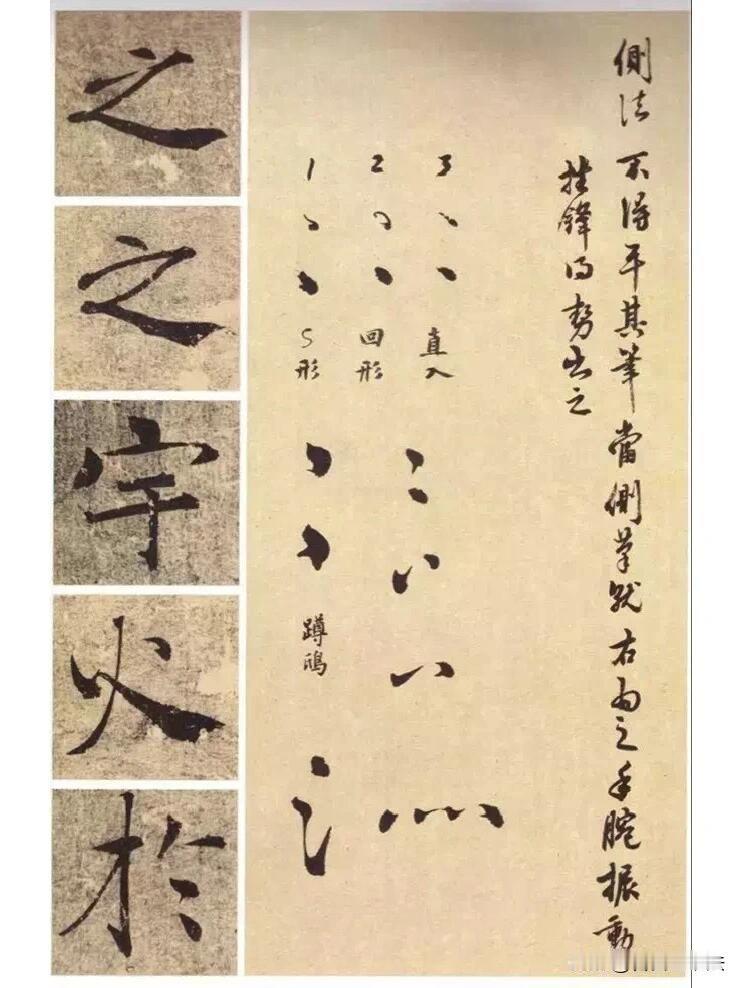 側法不得平其筆當側筆就右為之手腕振動
挫鋒得勢出之
3
直入
2
回形
1
S形
蹲鴟
之
之
宇
火
於